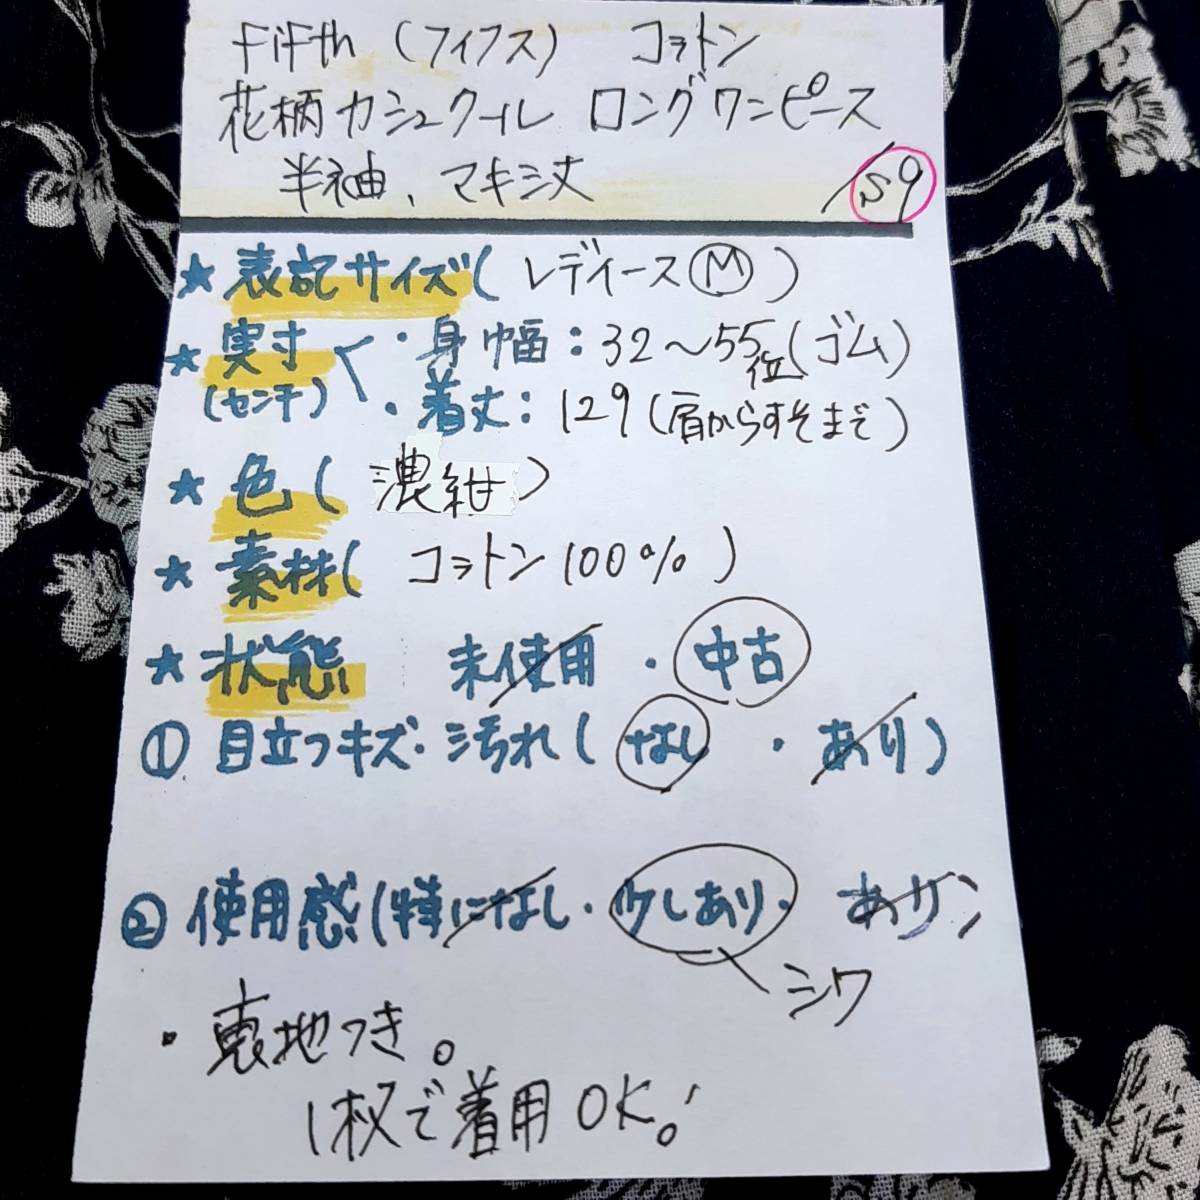 fifth (フィフス) コットン
花柄カシュクール ロングワンピース
半袖、マキシ丈 /59
★ 表記サイズ( レディースⓂ )
★ 実寸 ・身幅:32〜55位(ゴム)
(センチ) ・着丈:129(肩からすそまで)
★ 色( 濃紺 )
★ 素材( コットン100% )
★ 状態 未使用・中古
① 目立つキズ・汚れ( なし ・ あり )
② 使用感(特になし・少しあり・ あり)
シワ
・裏地つき。
1枚で着用OK!